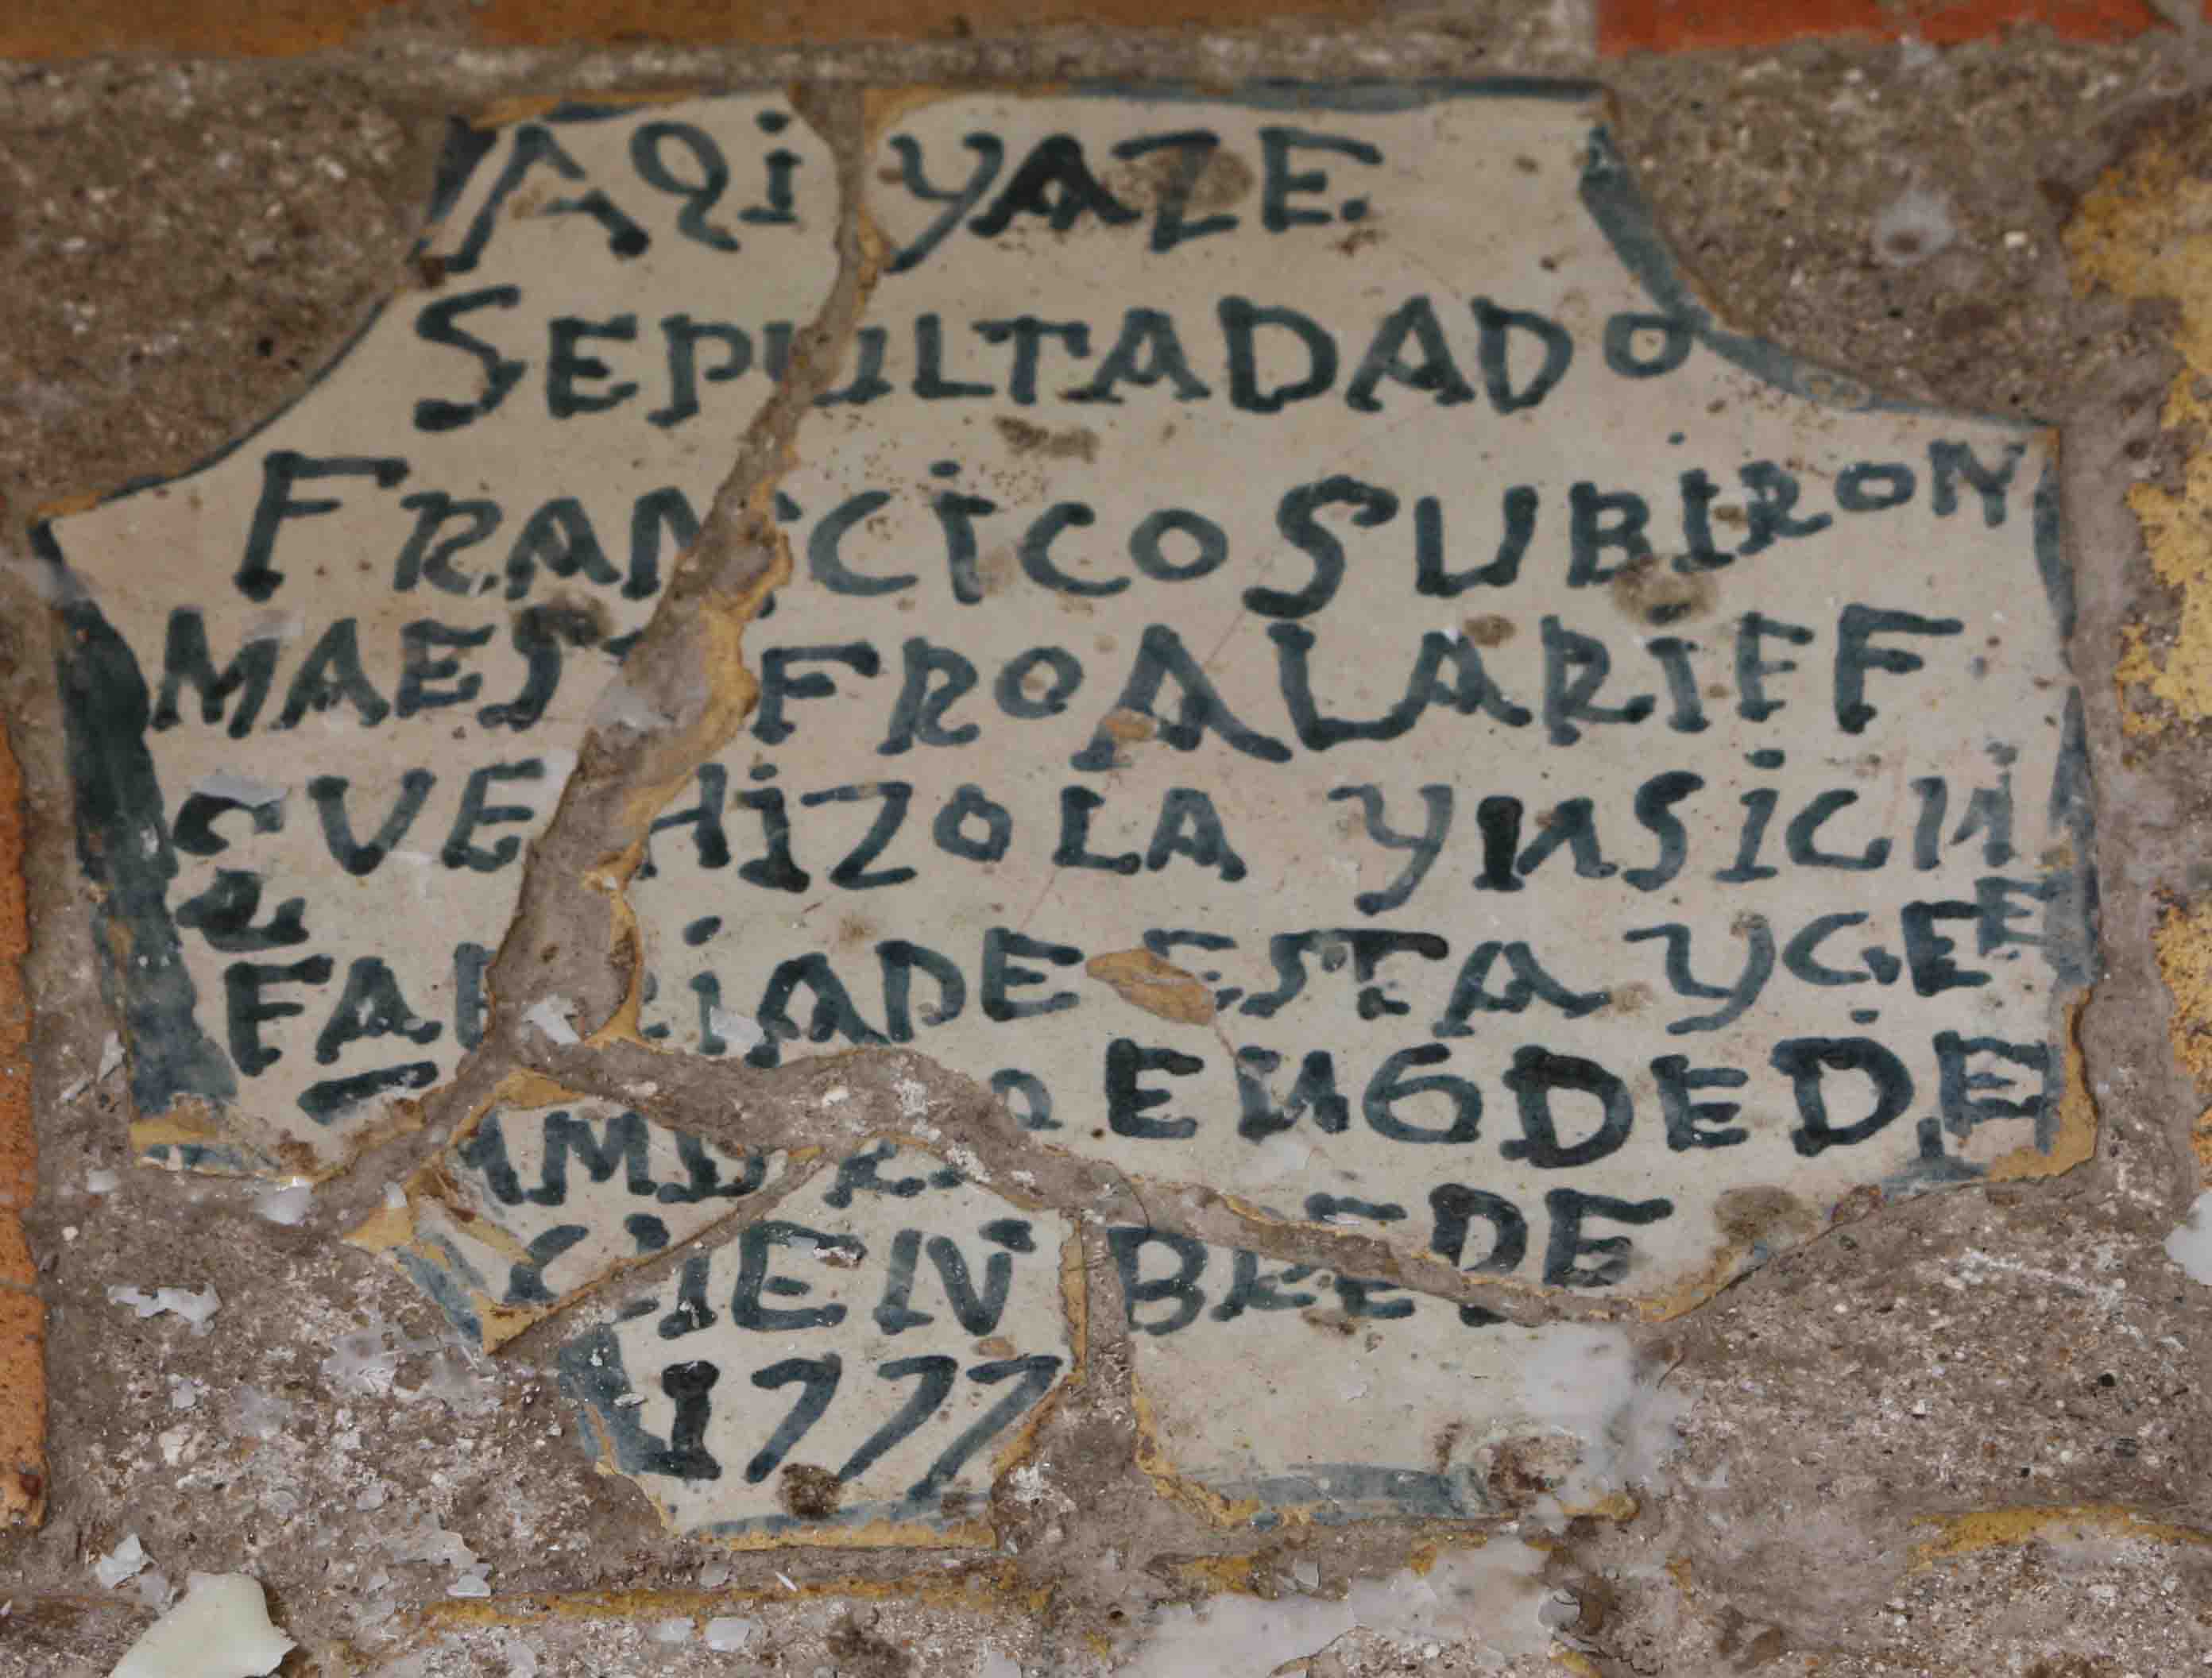 AQi YAZE
SEPULTADADO
FRANCiCO SUBIRON
MAEST FRO ALARIFF
CVE HiZO LA YNSiGNi
FAB iA DE ESTA YGEE
EN 6 DE DE
CiEN BRE DE
1777